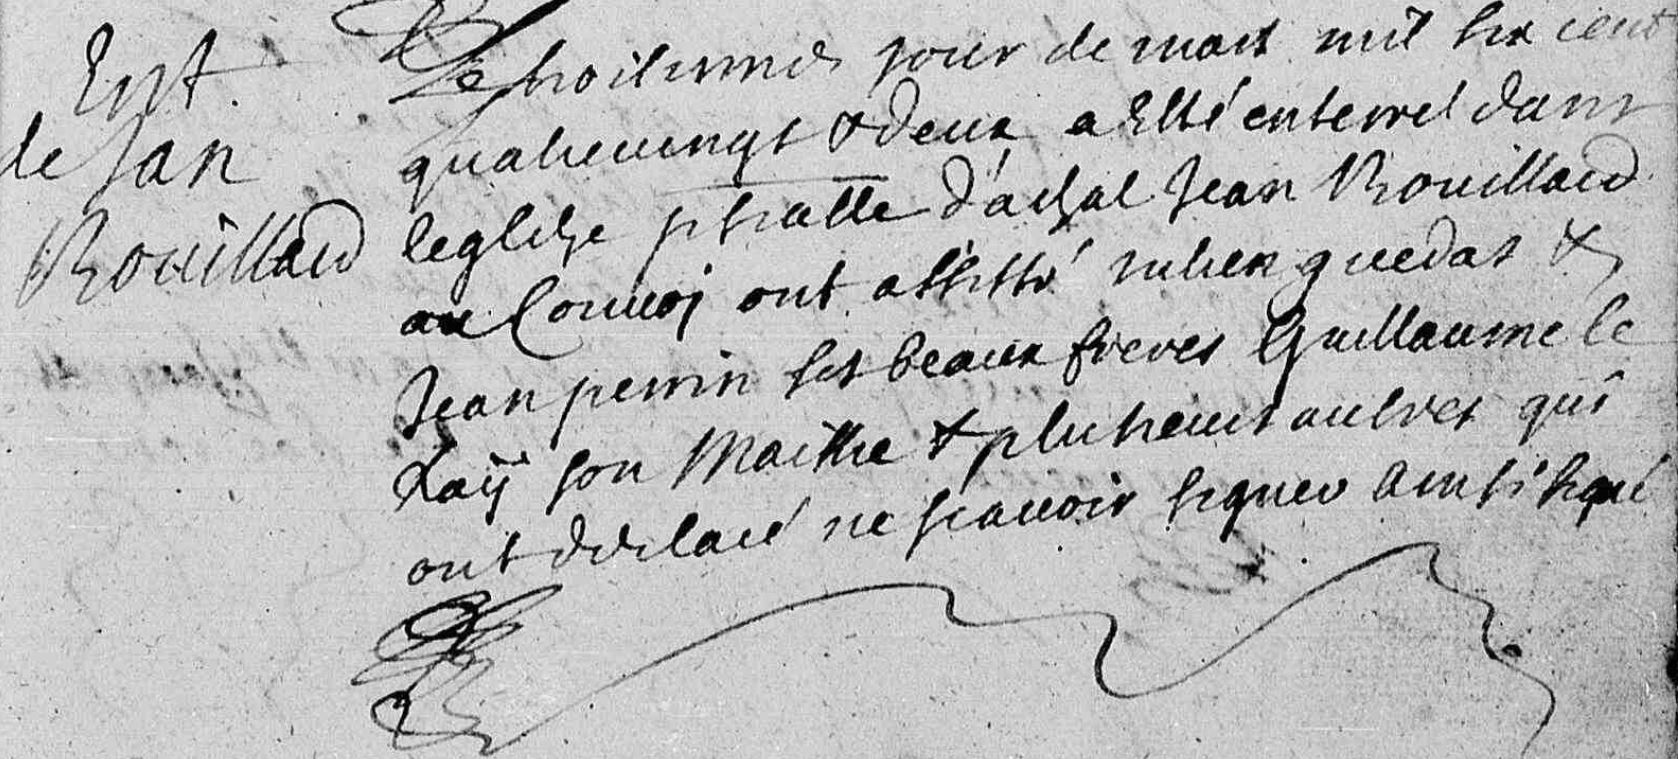 Ent.
de Jan
Rouillard
Le troisiesme jour de mars mil six cent
quatrevingt & deux a esté enterré dans
leglise dachal Jean Rouillard
au Convoi ont assisté Julien guedas &
Jean perrin ses beaux freres Guillaume le
son Maitre & plusieurs aultres qui
ont declaré ne scavoir signer ainsi signé